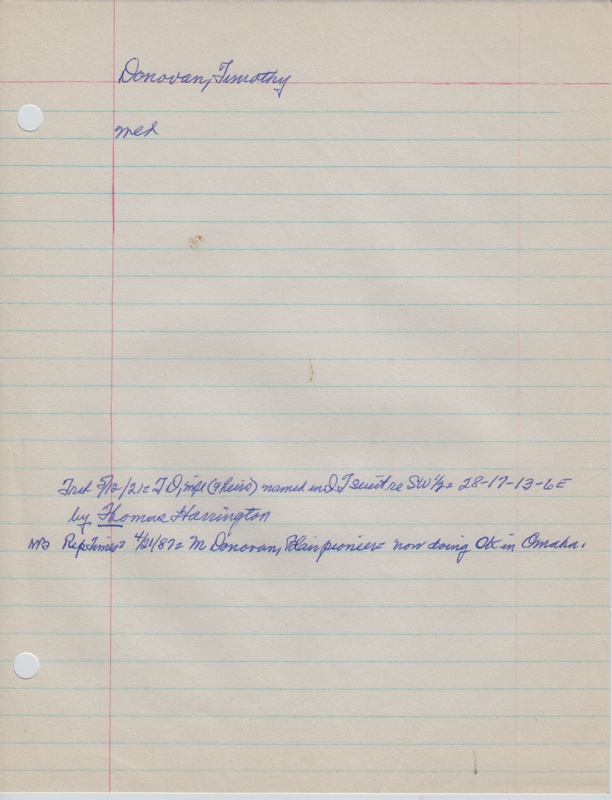 Donovan, Timothy
med
5/12/21= T D, (& heirs) named in suit re SW 1/2= 28-17-13-6E
by Thomas Harrington
Rep Times= 4/21/87= M Donovan, Blair pioneer= now doing OK in Omaha.